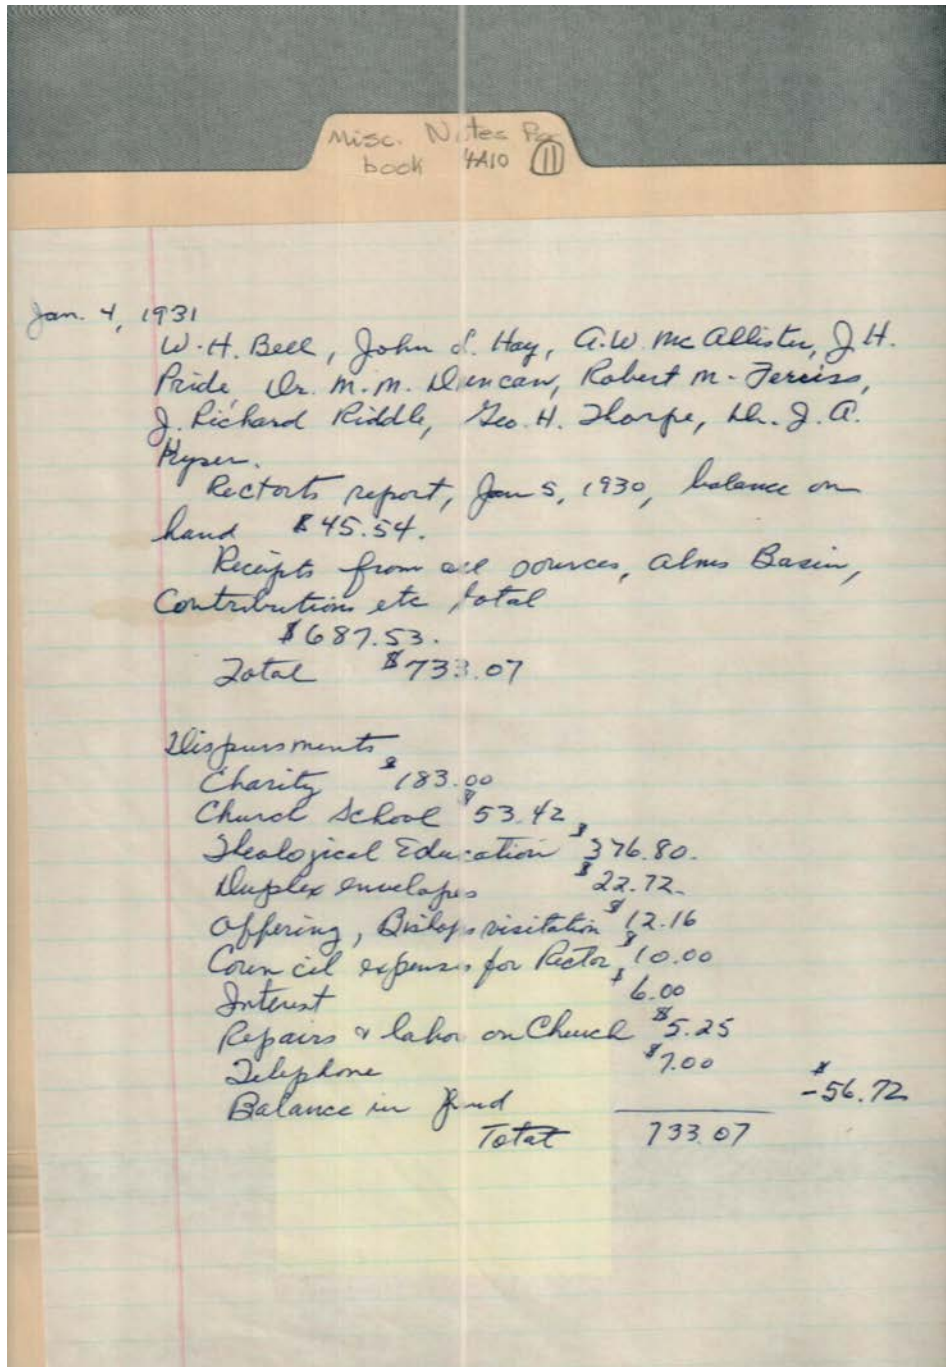 Misc. Notes Pg
book 4A10 11
Jan. 4, 1931
W.H. Bell, John L. Hay, A.W. McAllister, J H.
Pride, Dr. M.M. Duncan, Robert M. Ferriss,
J. Richard Riddle, Geo. H. Thorpe, Dr. J. A.
Kyser.
Rectorts report, Jan 5, 1930, balance on
hand $45.54.
Receipts from all sources, alms Basin,
Contributions etc total
$687.53.
Total $733.07
Dispursments
Charity $183.00
Church School $53.42
Theological Education $376.80.
Duplex envelopes $22.72.
Offering, Bishops visitation $12.16
Council expenses for Rector $10.00
Interest $6.00
Repairs & labor on Church $5.25
Telephone $7.00
Balance in fund $-56.72
Total 733.07